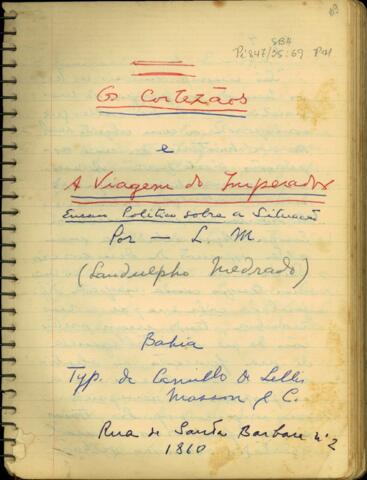 69
SBH
Pi 847/25:69 P41
Os Cortezãos
e
A Viagem do Imperador
Ensaio Politico sobre a Situação
Por — L. M.
(Landulpho Medrado)
Bahia
Typ. de Camillo de Lellis
Masson & C.
Rua de Santa Barbara nº 2
1860